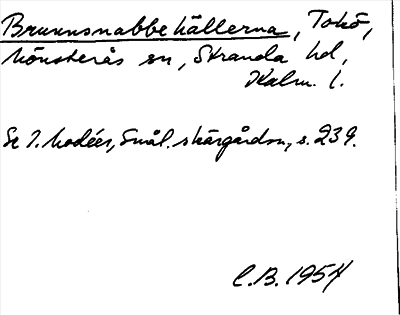 Brunnsnabbekällerna, Tokö,
Mönsterås sn, Stranda hd,
Kalm. l.
Se I. Modéer, Smål. skärgårdsn, s. 239.
C.B. 1954